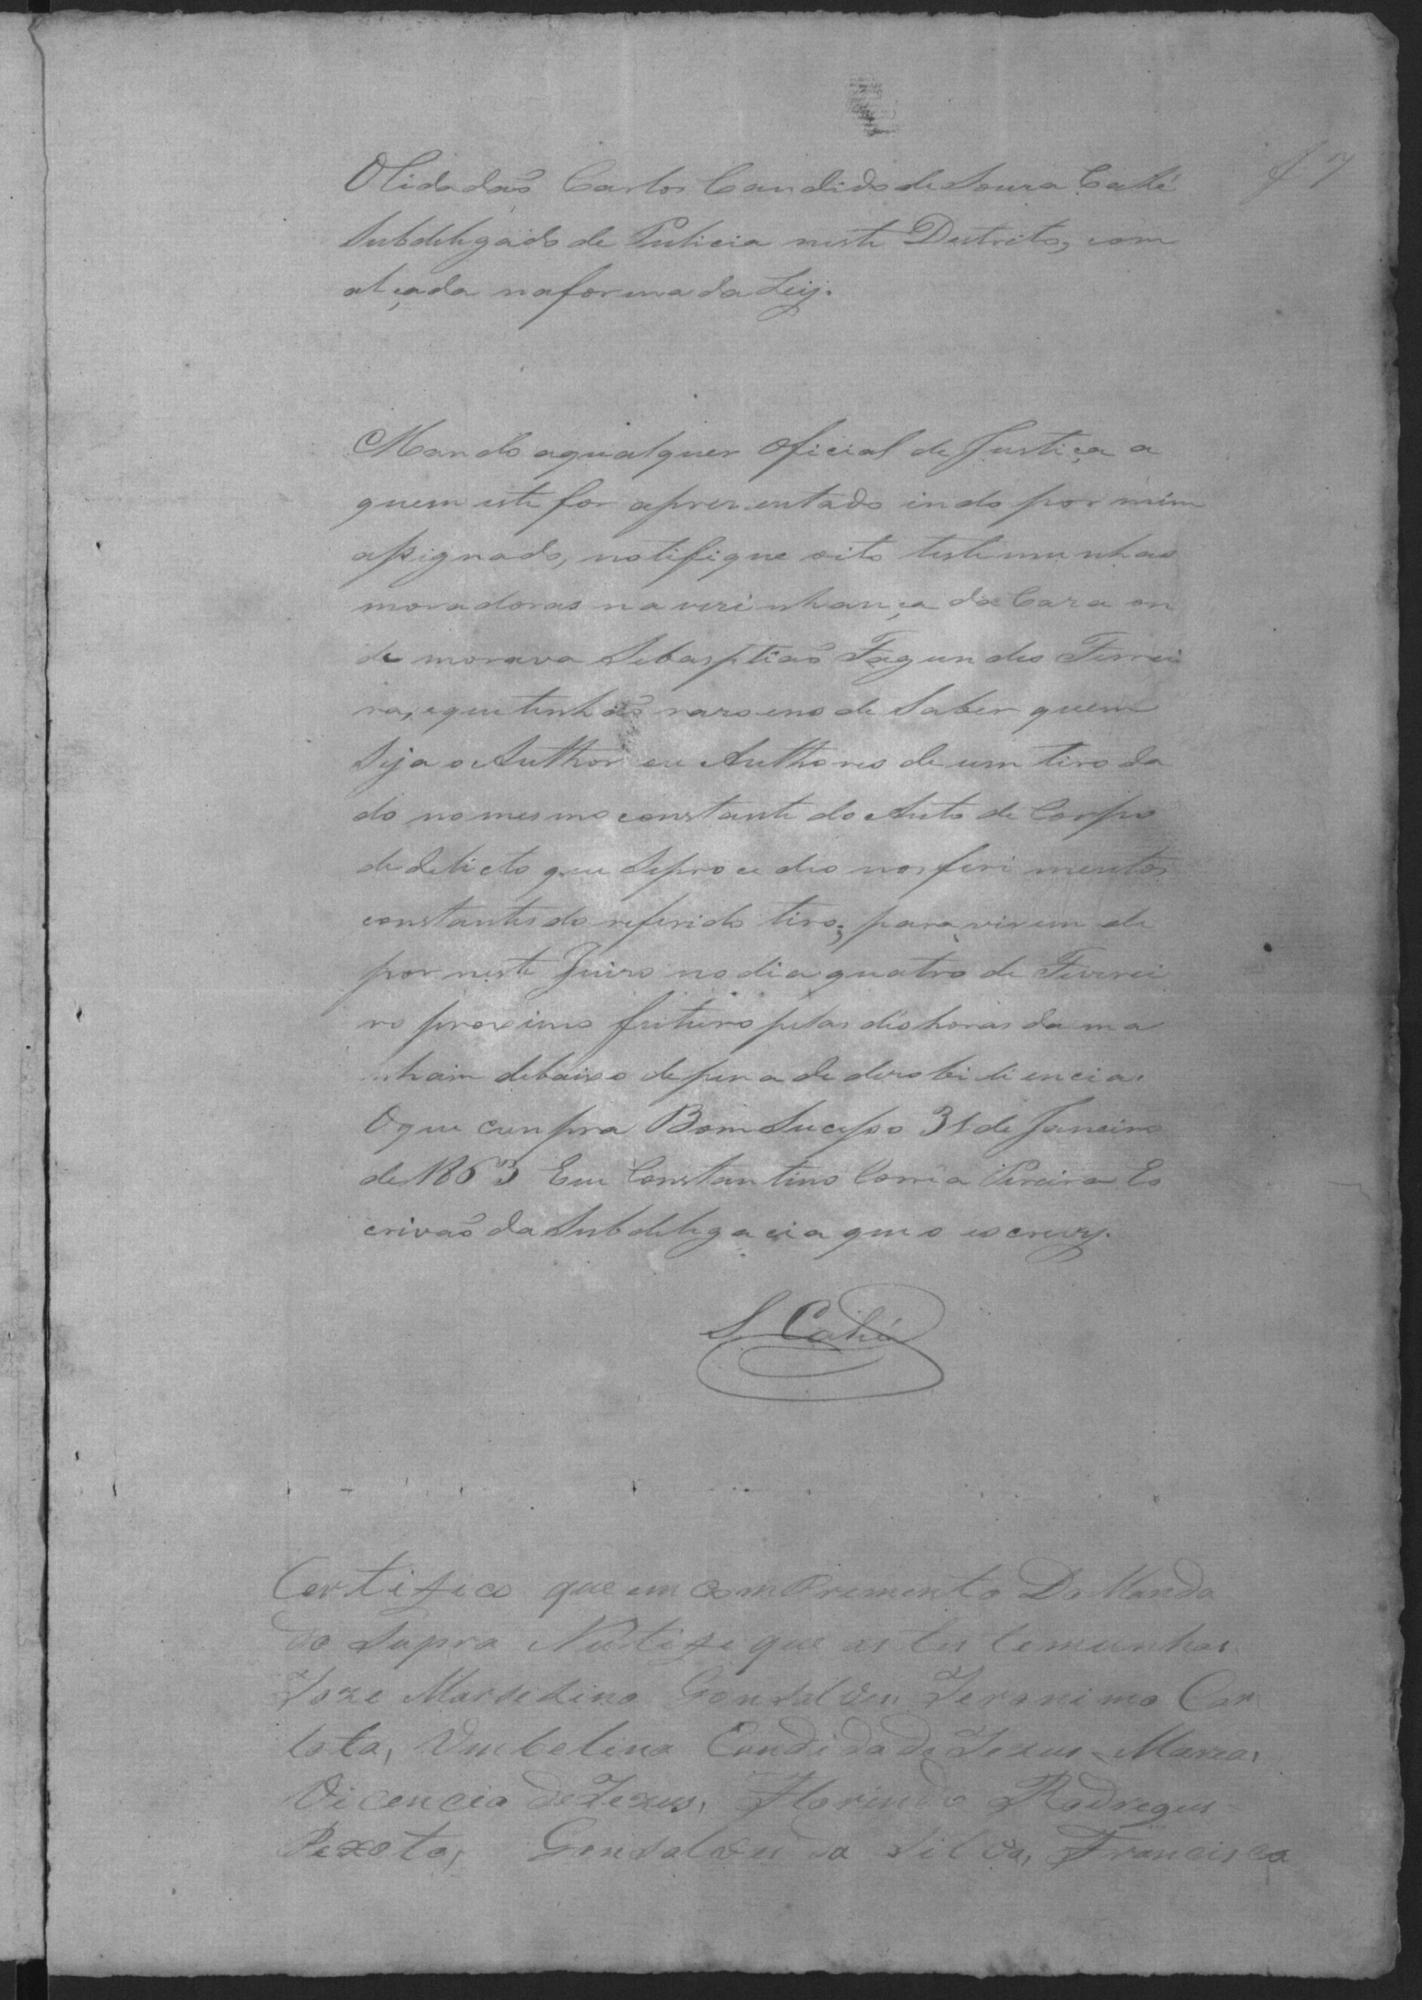 f. 7
O Cidadaõ Carlos Candido de Souza Calé
Subdelegado de Pulicia neste Destrito, com
alçada na forma da Ley.
Mando a qualquer Oficial de Justiça a
quem este for aprezentado indo por mim
assignado, notifique oito testimunhas
moradoras na vezinhança da Caza on
de morava Sebasptiaõ Fagundes Ferrei
ra, e que tenhaõ razoens de Saber quem
Seja o Author ou Authores de um tiro da
do no mesmo constante do Auto de Corpo
de delicto que Se procedeo nos ferimentos
constantes do referido tiro; para virem de
por neste Juizo no dia quatro de Feverei
ro proximo futuro pelas dés horas da ma
nham debaixo de pena de dezobidiencia.
O que cunpra Bom Sucesso 31 de Janeiro
de 1863 Eu Constantino Corrêa Pereira Es
crivaõ da Subdelegacia que o escrevy.
S. Calé
Certifico que em comprimento Do Manda
do Supra Nutifique as testemunhas
Joze Marselino Gonsalves Jeronimo Car
lota, Umbelina Candida de Jezus Maria
Vicencia de Jezus, Florindo Rodregues
Pexoto, Gonsalves da Silva, Francisco